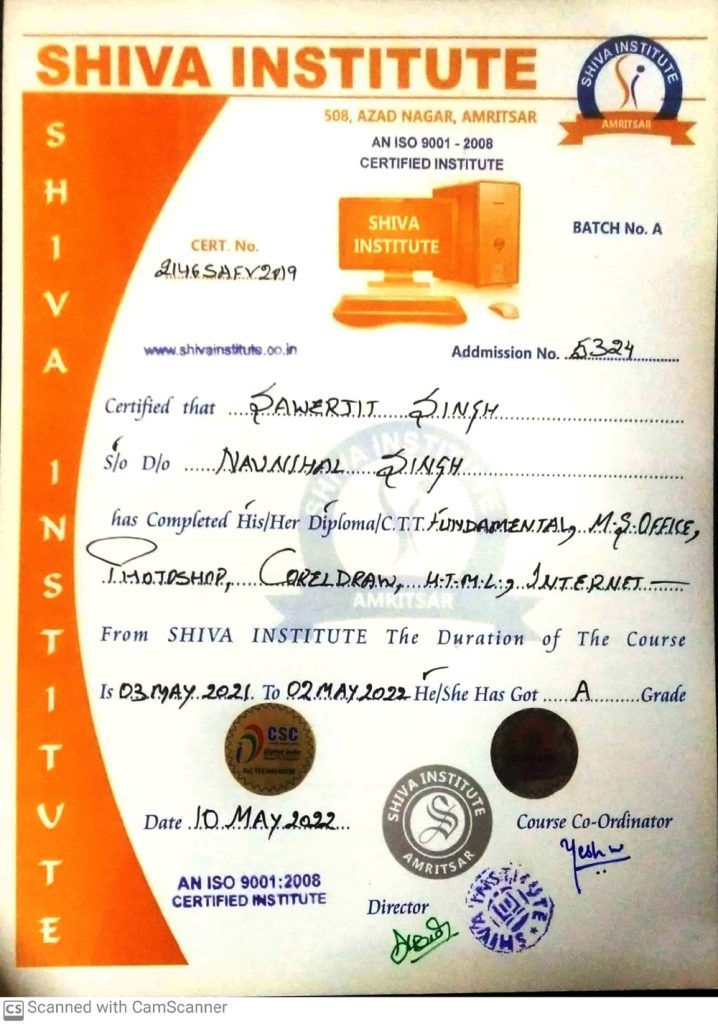 SHIVA INSTITUTE
SHIVA INSTITUTE
AMRITSAR
508, AZAD NAGAR, AMRITSAR
AN ISO 9001 - 2008
CERTIFIED INSTITUTE
SHIVA INSTITUTE
SHIVA
INSTITUTE
BATCH No. A
CERT. No.
2146SAFV2019
www.shivainstitute.co.in
Addmission No. 5324
Certified that SAWERJIT SINGH
S/o D/o NAUNIHAL SINGH
SHIVA INSTITUTE
has Completed His/Her Diploma/C.T.T. FUNDAMENTAL, M.S.OFFICE,
PHOTOSHOP, CORELDRAW, H.T.M.L., INTERNET
AMRITSAR
From SHIVA INSTITUTE The Duration of The Course
Is 03 MAY 2021 To 02 MAY 2022 He/She Has Got A Grade
CSC
Digital India
Date 10 MAY 2022
SHIVA INSTITUTE
AMRITSAR
Course Co-Ordinator
AN ISO 9001:2008
CERTIFIED INSTITUTE
Director
SHIVA INSTITUTE
CS Scanned with CamScanner